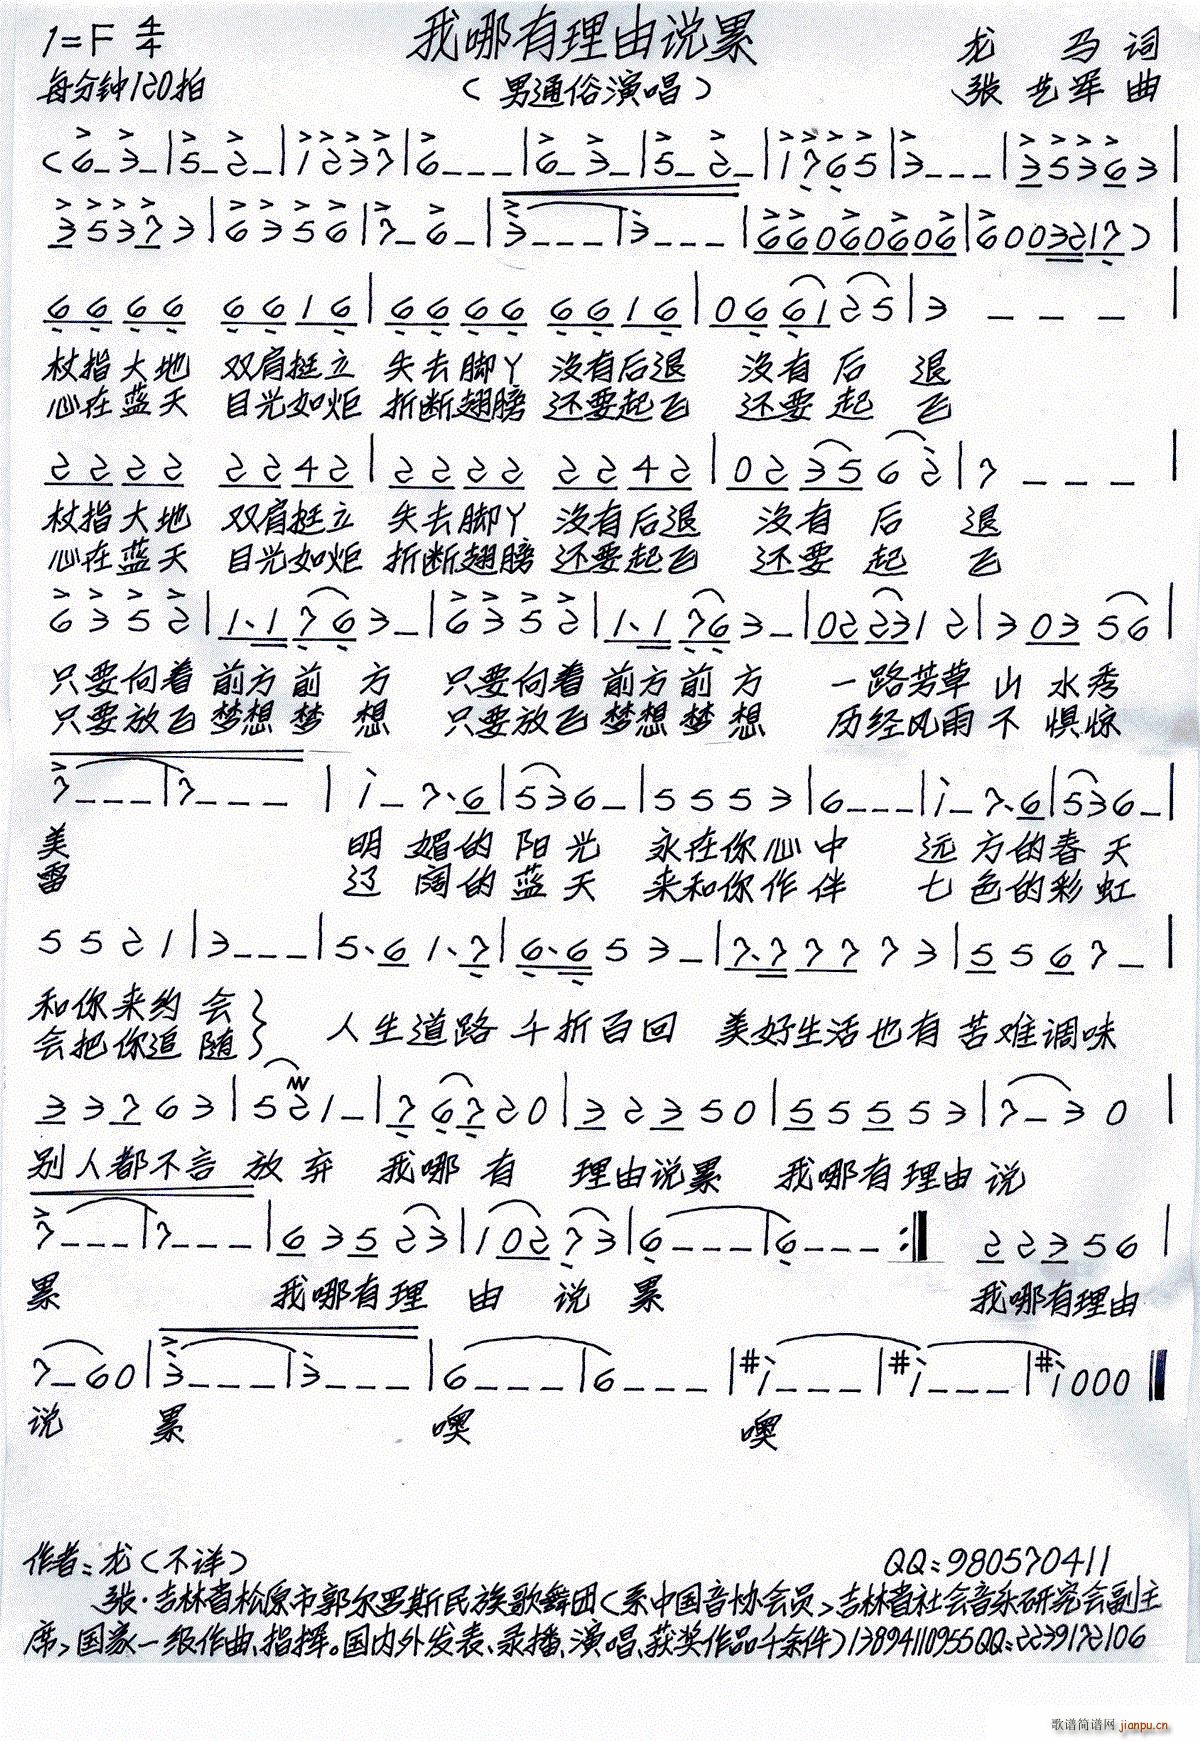 我哪有理由说累
1=F 4/4
龙 马 词
每分钟120拍
（男通俗演唱）
张艺军 曲
(6_3_|5_2_|1237|6___|6_3_|5_2_|1765|3___|35363|
35373|6356|7_6_|3___|3___|66060606|6003217)|
6666 6616|6666 6616|066125|3 _ _ _|
杖指大地 双肩挺立 失去脚丫 没有后退 没有后退
心在蓝天 目光如炬 折断翅膀 还要起飞 还要起飞
2222 2242|2222 2242|023562|7 _ _ _|
杖指大地 双肩挺立 失去脚丫 没有后退 没有后退
心在蓝天 目光如炬 折断翅膀 还要起飞 还要起飞
6352|1.1763_|6352|1.1763_|022312|30356|
只要向着前方前方 只要向着前方前方 一路芳草山水秀
只要放飞梦想梦想 只要放飞梦想梦想 历经风雨不惧惊
7___|7___|i_7.6|536_|5553|6___|i_7.6|536_|
美 明媚的阳光 永在你心中 远方的春天
雷 辽阔的蓝天 来和你作伴 七色的彩虹
5521|3___|5.61.7|6.653_|7.77773|5567_|
和你来约会
会把你追随
人生道路千折百回 美好生活也有苦难调味
33763|521_|76720|32350|55553|7_30|
别人都不言放弃 我哪有理由说累 我哪有理由说
7___|7___|63523|10273|6___|6___:| 22356|
累 我哪有理由说累 我哪有理由
7_60|3___|3___|6___|6___|#i___|#i___|#i000|
说 累 噢 噢
作者：龙（不详）
QQ：980570411
张·吉林省松原市郭尔罗斯民族歌舞团〈系中国音协会员〉吉林省社会音乐研究会副主
席〉国家一级作曲、指挥。国内外发表、录播、演唱、获奖作品千余件）13894110955QQ：2239172106
歌谱简谱网 jianpu.cn